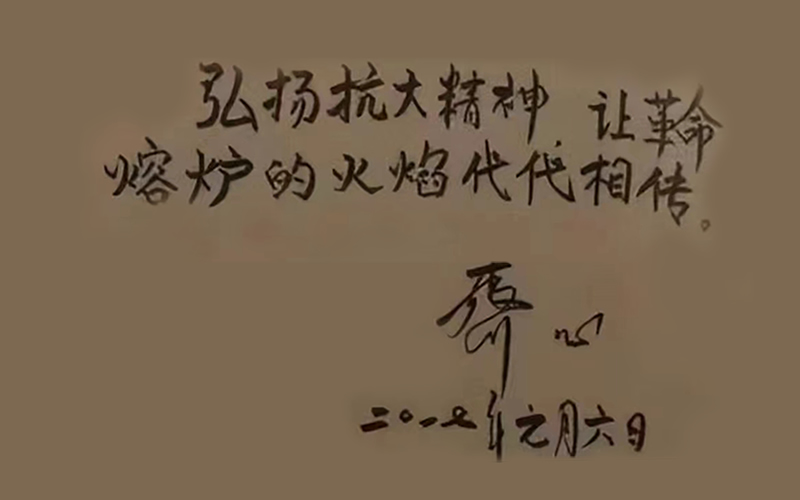 弘扬抗大精神 让革命
熔炉的火焰代代相传。
齐心
二〇一七年元月六日